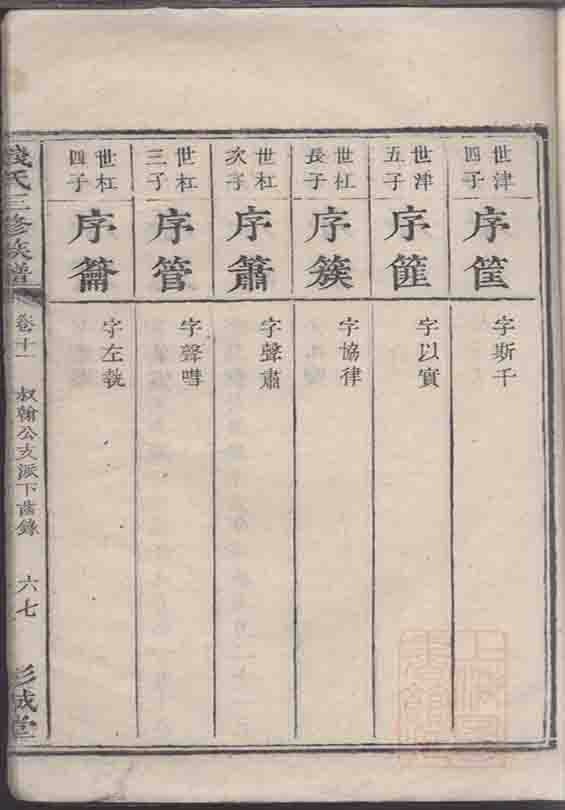 世津
四子
序筐
字斯千
世津
五子
序篚
字以實
世杠
長子
序簇
字協律
世杠
次子
序簫
字聲肅
世杠
三子
序管
字聲嘒
世杠
四子
序籥
字左執
錢氏三修族譜
卷十一
叔翰公支派下齒錄
六七
彭城堂